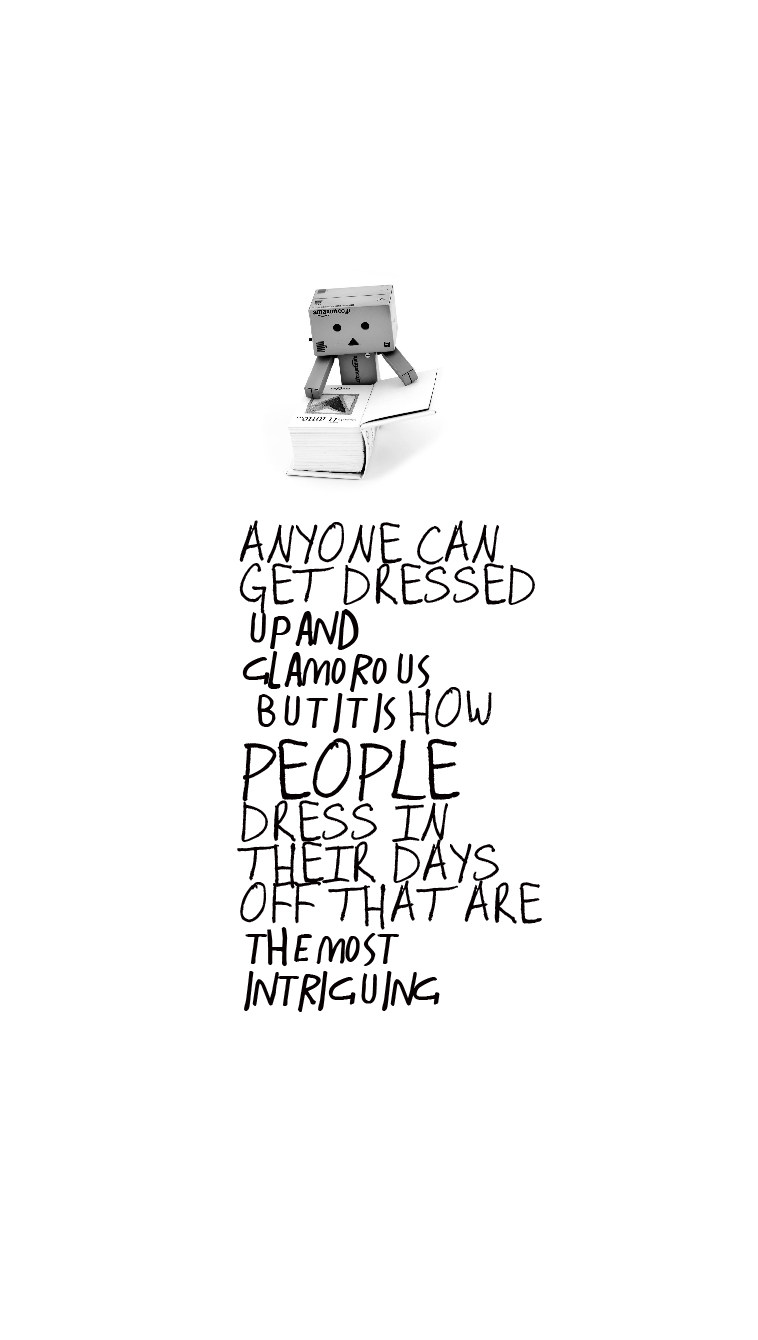 ANYONE CAN
GET DRESSED
UP AND
GLAMOROUS
BUT IT IS HOW
PEOPLE
DRESS IN
THEIR DAYS
OFF THAT ARE
THE MOST
INTRIGUING